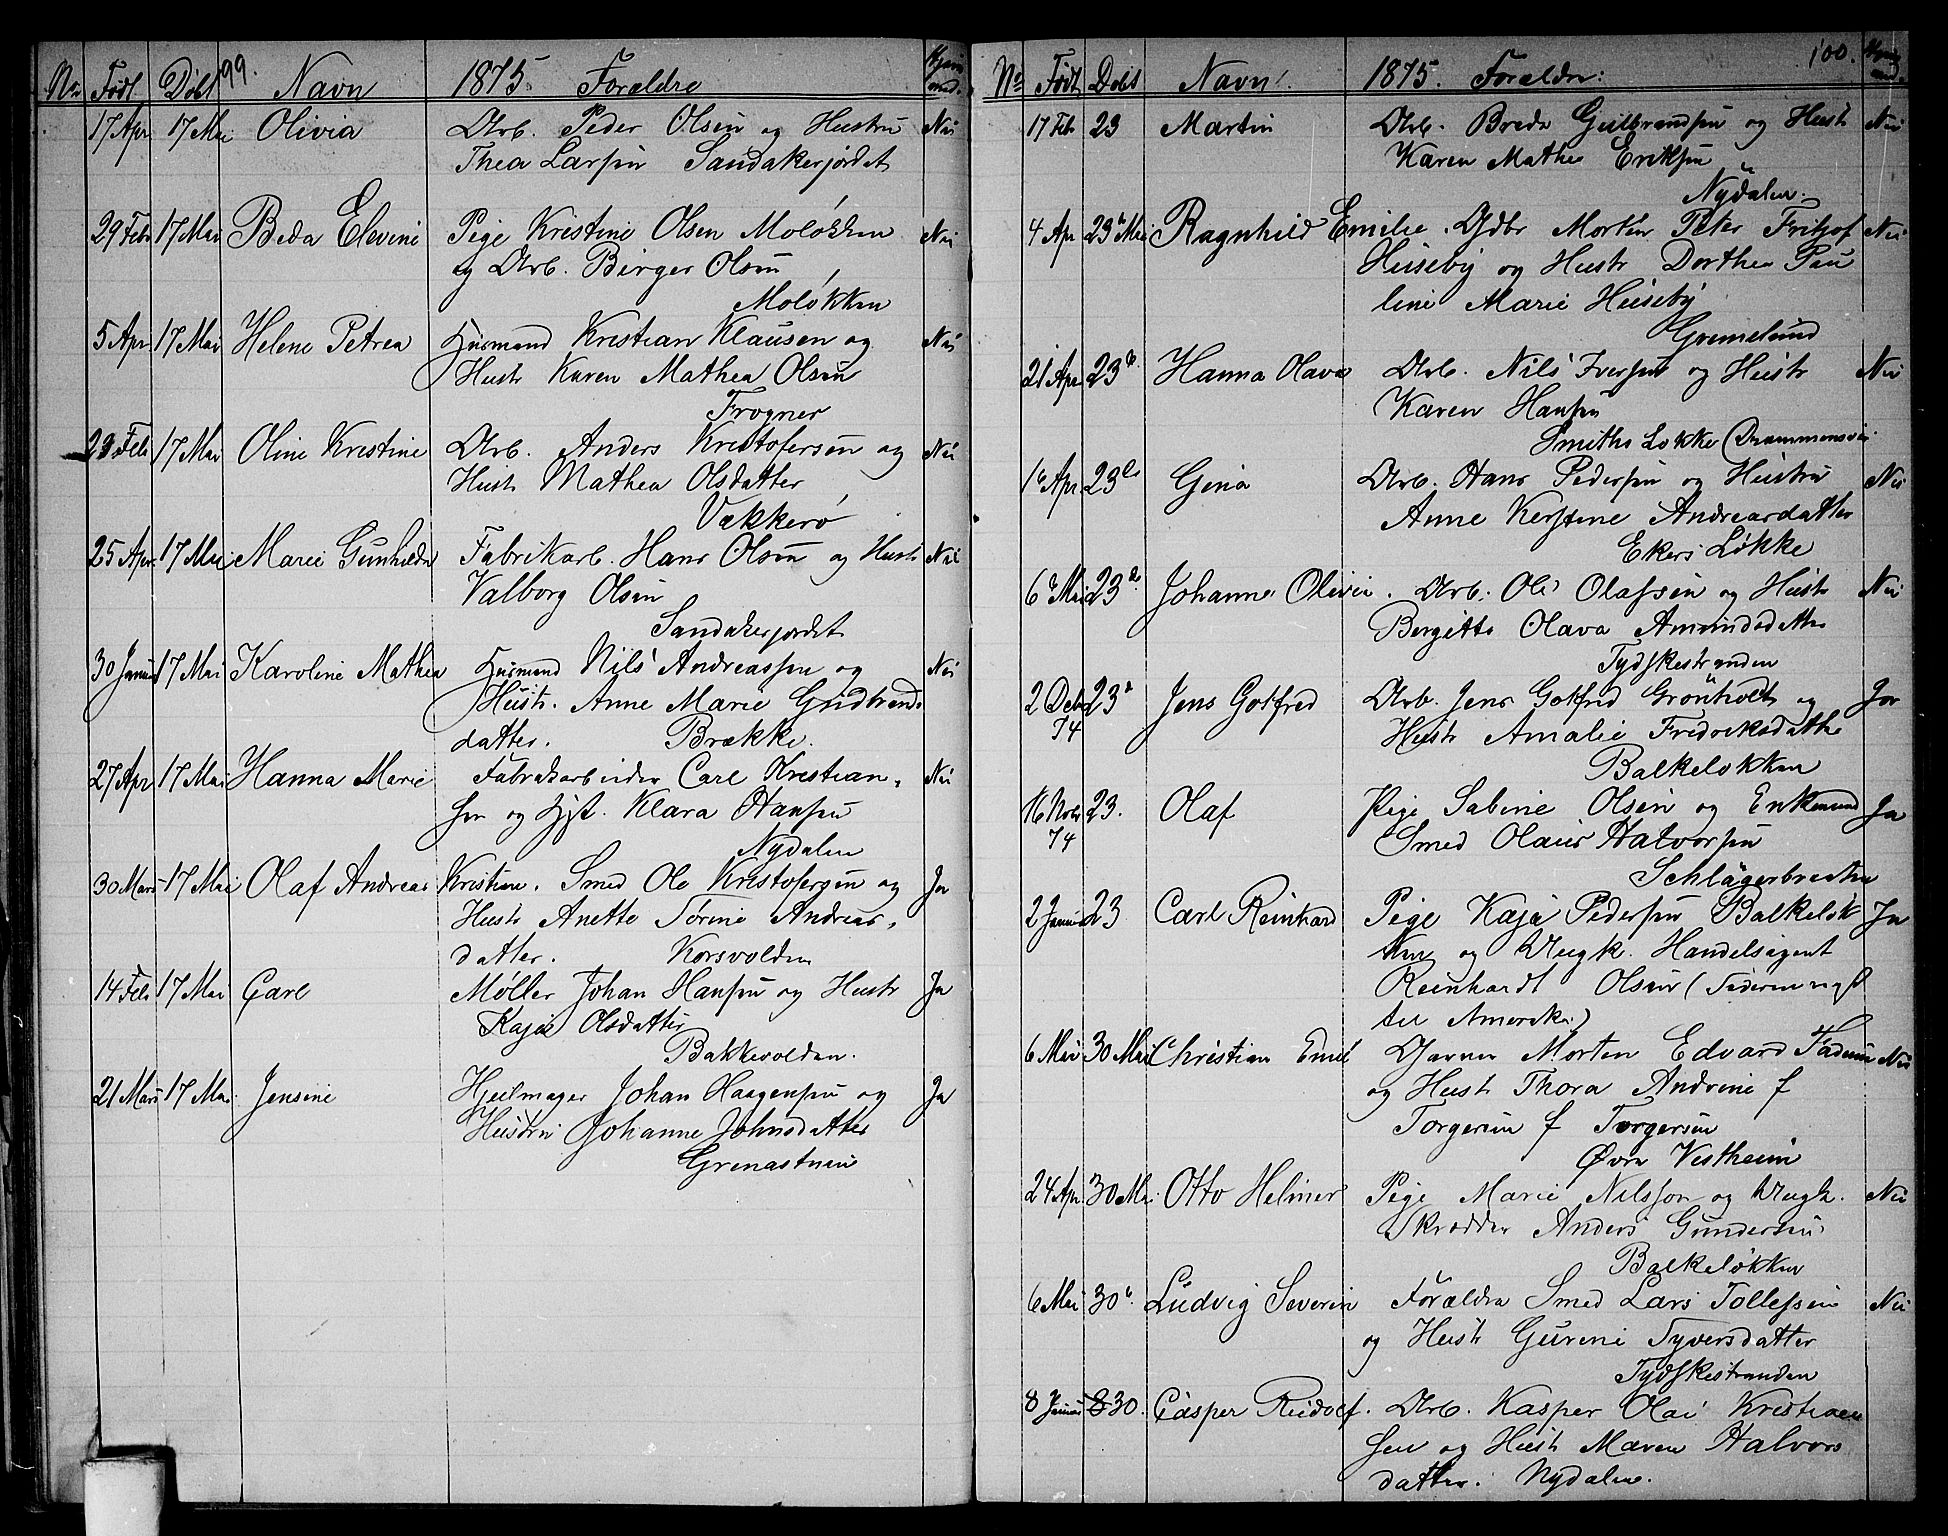 99.
No Født Døbt Navn 1875 Forældre Hjemmed.
17 Apr 17 Mai Olivia Arb. Peder Olsen og Hustru Nei
Thea Larsen Sandakerjordet
29 Feb 17 Mai Beda Elvine Pige Kristine Olsen Moløkken Nei
og Arb. Birger Olsen
Moløkken
5 Apr 17 Mai Helene Petrea Husmand Kristian Klausen og Nei
Hustr Karen Mathea Olsen
Frogner
23 Feb 17 Mai Oline Kristine Arb. Anders Kristofersen og Nei
Hustr Mathea Olsdatter
Vækkerø
25 Apr. 17 Mai Marie Gunhilda Fabrikarb. Hans Olsen og Hustr Nei
Valborg Olsen
Sandakerjordet
30 Januar 17 Mai Karoline Mathea Husmand Nils Andreassen og Nei
Hustr. Anne Marie Gudbrands
datter. Brække.
27 Apr 17 Mai Hanna Marie Fabrikarbeider Carl Kristian- Nei
sen og Hst. Klara Hansen
Nydalen
30 Mars 17 Mai Olaf Andreas Kristian. Smed Ole Kristofersen og Ja
Hustr Anette Sørine Andreas-
datter. Korsvolden
14 Feb 17 Mai Carl Møller Johan Hansen og Hustr Ja
Kaja Olsdatter
Bakkevolden.
21 Mars 17 Mai Jensine Hjulmager Johan Haagensen og Ja
Hustru Johanne Johnsdatter
Grenastuen
100.
No Født Døbt Navn. 1875. Forældre: Hjemmed.
17 Feb 23 Martin Arb. Brede Gulbrandsen og Hustr Nei
Karen Mathea Eriksen
Nydalen.
4 Apr 23 Mai Ragnhild Emilie. Gdbr Morten Peter Fritjof Nei
Huseby og Hustr Dorthea Pau
line Marie Huseby
Grimelund
21 Apr 23 Hanna Olava Arb. Nils Iversen og Hustr Nei
Karen Hansen
Smiths Løkke (Drammensvei
16 Apr. 23 Gina Arb. Hans Pedersen og Hustru Nei
Anne Kerstine Andreasdatter
Ekers Løkke
6 Mai 23 Johanne Olivie. Arb. Ole Olafsen og Hustr Nei
Bergitte Olava Amundsdatter
Tydskestranden
2 Deb 74 23 Jens Gotfred Arb. Jens Gotfred Grönholdt og Ja
Hustr Amalie Fredriksdatter
Balkeløkken
16 Nobr 74 23. Olaf Pige Sabine Olsen og Enkemand Ja
Smed Olaus Halvorsen
Schlägerbrectne
2 Januar 23 Carl Reinhard Pige Kaja Pedersen Balkeløk Ja
ken og Ungk. Handelsagent
Reinhardt Olsen (Faderen rejst
til Amerika)
6 Mai 30 Mai Christian Emil Garver Morten Edvard Fadum Nei
og Hustr Thora Andrine f
Torgersen f Torgersen
Øvre Vestheim
24 Apr. 30 Mai. Otto Helmer Pige Marie Nilsson og Ungk. Nei
Skrædder Anders Gundersen
Balkeløkken
6 Mai 30. Ludvig Severin Forældre Smed Lars Tollefsen Nei
og Hustr Gurine Syversdatter
Tydskestranden
8 Januar 30. Casper Rudolf. Arb. Kasper Olai Kristian
sen og Hustr Maren Halvors
datter. Nydalen.